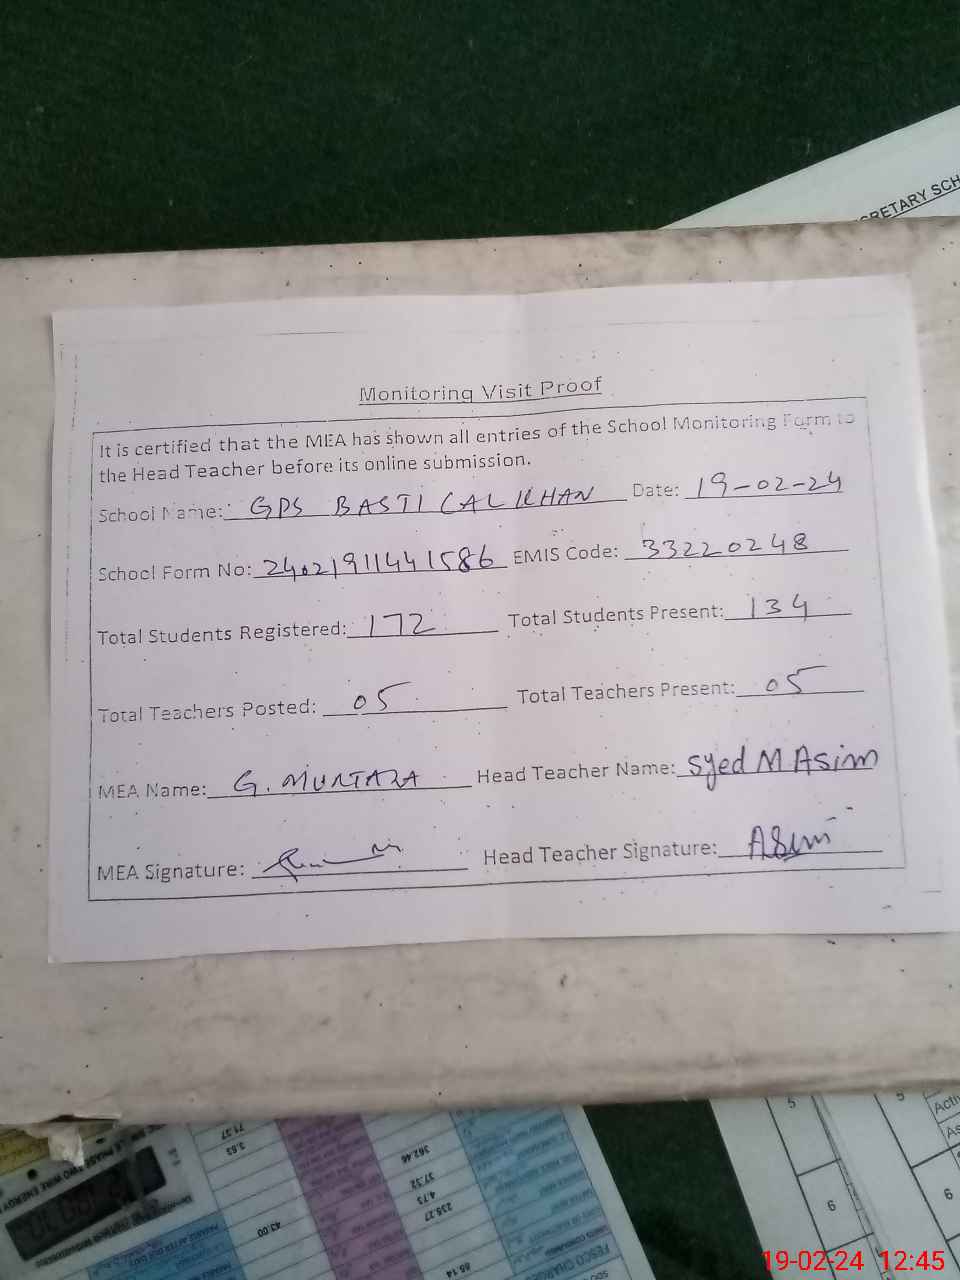 CRETARY SCH
Monitoring Visit Proof
It is certified that the MEA has shown all entries of the School Monitoring Form to
the Head Teacher before its online submission.
School Name: GPS BASTI LAL KHAN Date: 19-02-24
School Form No: 2402191144 1586 EMIS Code: 33220248
Total Students Registered: 172 Total Students Present: 134
Total Teachers Posted: 05 Total Teachers Present: 05
MEA Name: G. MURTAZA Head Teacher Name: Syed M Asim
MEA Signature: Head Teacher Signature: Asim
71.37
3.63
362.46
37.32
4.73
235.27
43.00
85.14
FESCO CHARGES
5
5
Acti
As
6
6
19-02-24 12:45